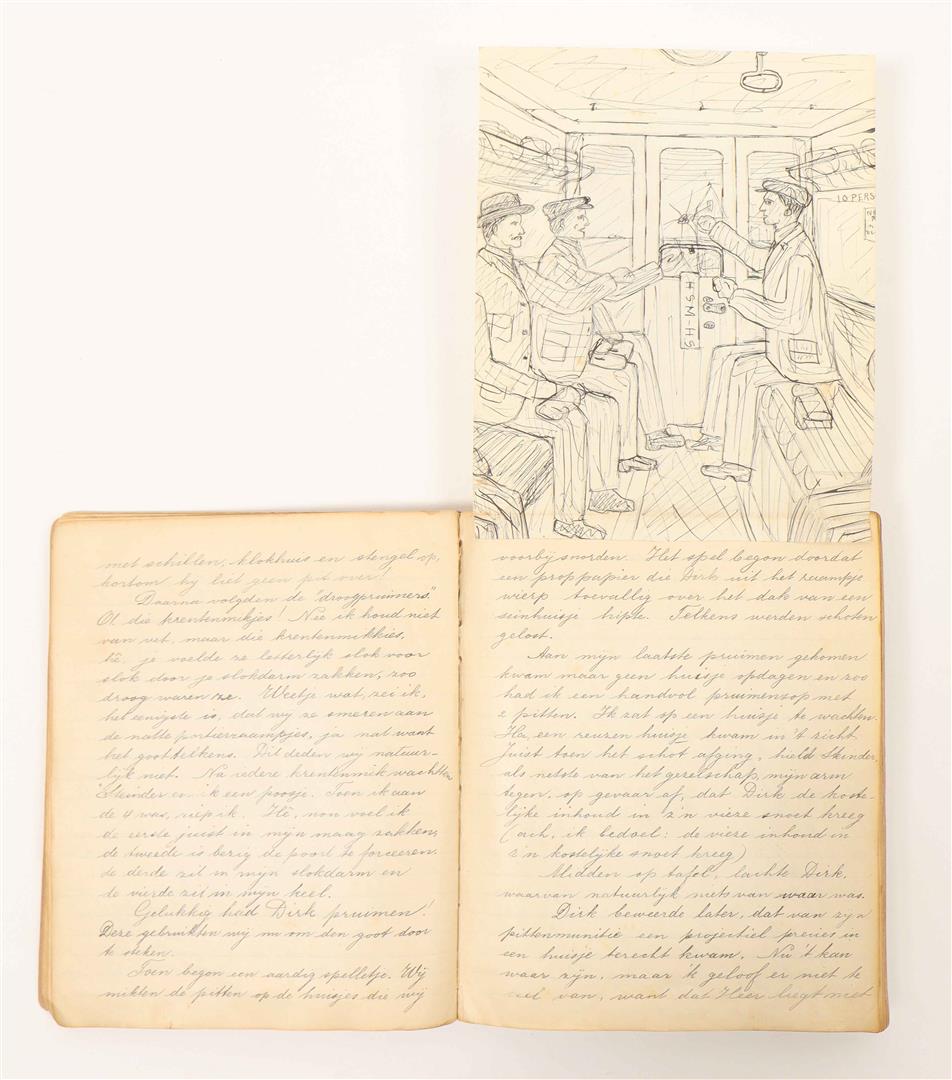 10 PERS
HSM-HS
met schillen, klokhuis en stengel op,
kortom hij liet geen pit over!
Daarna volgden de "droogpruimers".
O! die krentenmikjes! Nee ik houd niet
van vet, maar die krentenmikkies,
hè, je voelde ze letterlijk slok voor
slok door je slokdarm zakken, zoo
droog waren ze. Weetje wat, zei ik,
het eenigste is, dat wij ze smeren aan
de natte portierraampjes, ja nat want
het goot telkens. Dit deden wij natuur-
lijk niet. Na iedere krentenmik wachtten
Skinder en ik een poosje. Toen ik aan
de 4 was, riep ik. Hè, non voel ik
de eerste juist in mijn maag zakken,
de tweede is bezig de poort te forceeren.
de derde zit in mijn slokdarm en
de vierde zit in mijn keel.
Gelukkig had Dirk pruimen!
Deze gebruikten wij nu om den goot door
te steken.
Toen begon een aardig spelletje. Wij
mikten de pitten op de huisjes die wij
voorbij snorden. Het spel begon doordat
een prop papier die Dirk uit het raampje
wierp toevallig over het dak van een
seinhuisje hipte. Telkens werden schoten
gelost.
Aan mijn laatste pruimen gekomen
kwam maar geen huisje opdagen en zoo
had ik een handvol pruimensop met
2 pitten. Ik zat op een huisje te wachten.
Ha, een reuzen huisje kwam in 't zicht
Juist toen het schot afging, hield Skinder,
als netste van het gezelschap, mijn arm
tegen, op gevaar af, dat Dirk de koste-
lijke inhoud in z'n vieze snoet kreeg
(ach, ik bedoel: de vieze inhoud in
z'n kostelijke snoet kreeg)
Midden op tafel, lachte Dirk,
waarvan natuurlijk niets van waar was.
Dirk beweerde later, dat van zijn
pittenmunitie een projectiel precies in
een huisje terecht kwam. Nu 't kan
waar zijn, maar 'k geloof er niet te
veel van, want dat Heer liegt met